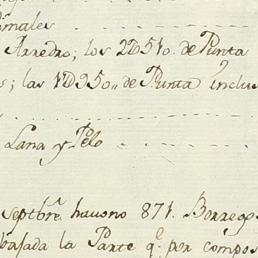 nimales
Arredro; los 2D510. de Punta
s; las 1D950,, de Punta inclu
Lana y Pelo
Septbre. hauono 871. Borregos
basada la Parte q.e por compos